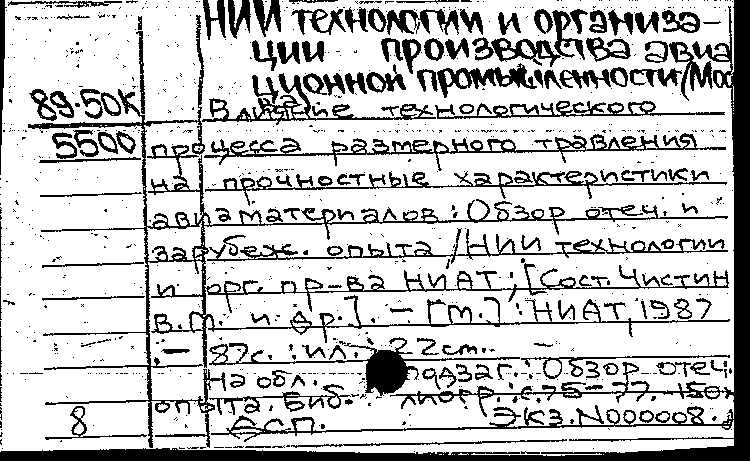 НИИ технологии и организа-
ции производства авиа
ционной промышленности (Мос
89-50К Влияние технологического
5500 процесса размерного травления
на прочностные характеристики
авиаматериалов : Обзор отеч. и
зарубеж. опыта / НИИ технологии
и орг. пр-ва НИАТ ; [Сост. Чистин
В.М. и др.]. – [М.] : НИАТ, 1987
. – 87с. : ил. ; 22см. –
На обл. подзаг. : Обзор отеч.
опыта. Библиогр. : с. 75-77. 150
8 ДСП. Экз. N000008.